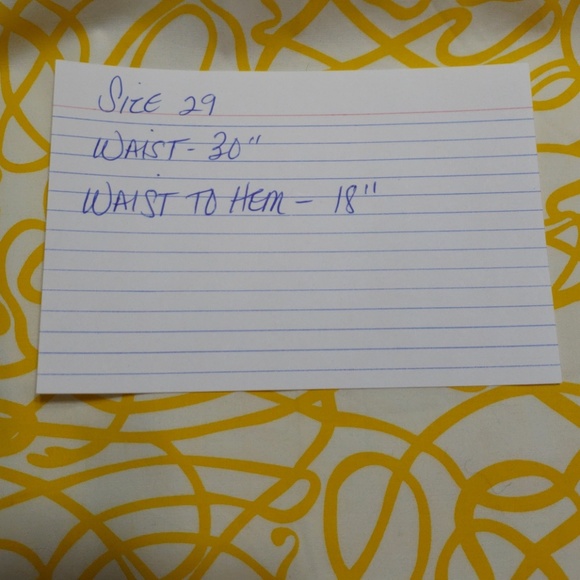 Size 29
WAIST - 30"
WAIST TO HEM - 18"